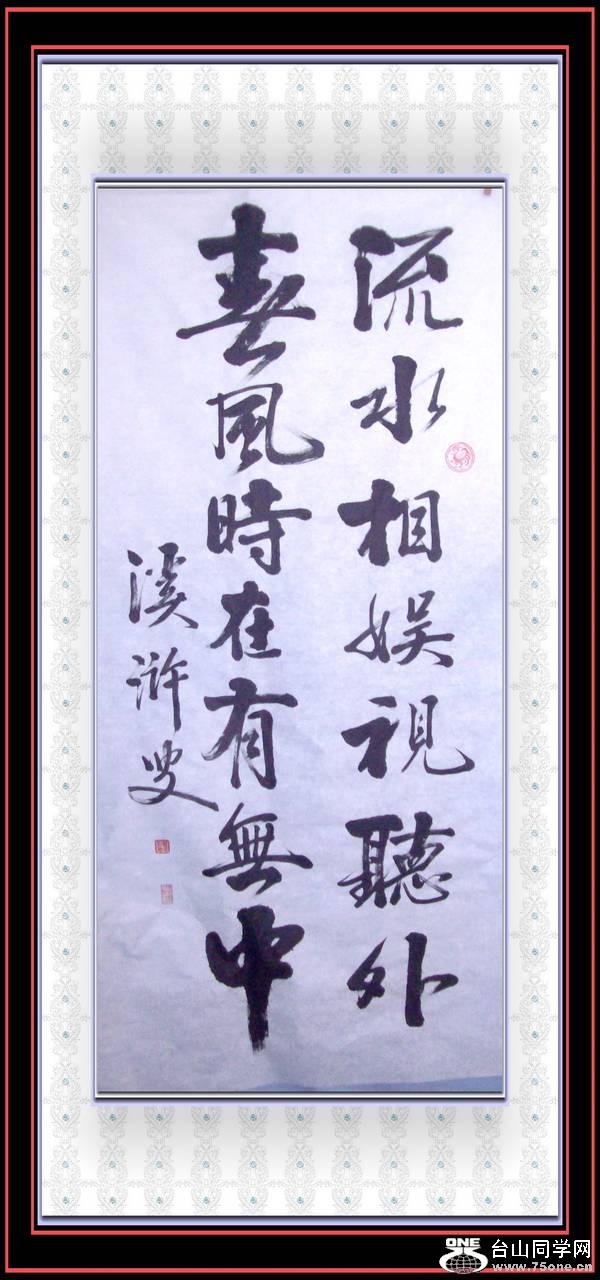 流水相娱視聽外
春風時在有無中
溪滸叟
ONE
台山同学网
www.75one.cn